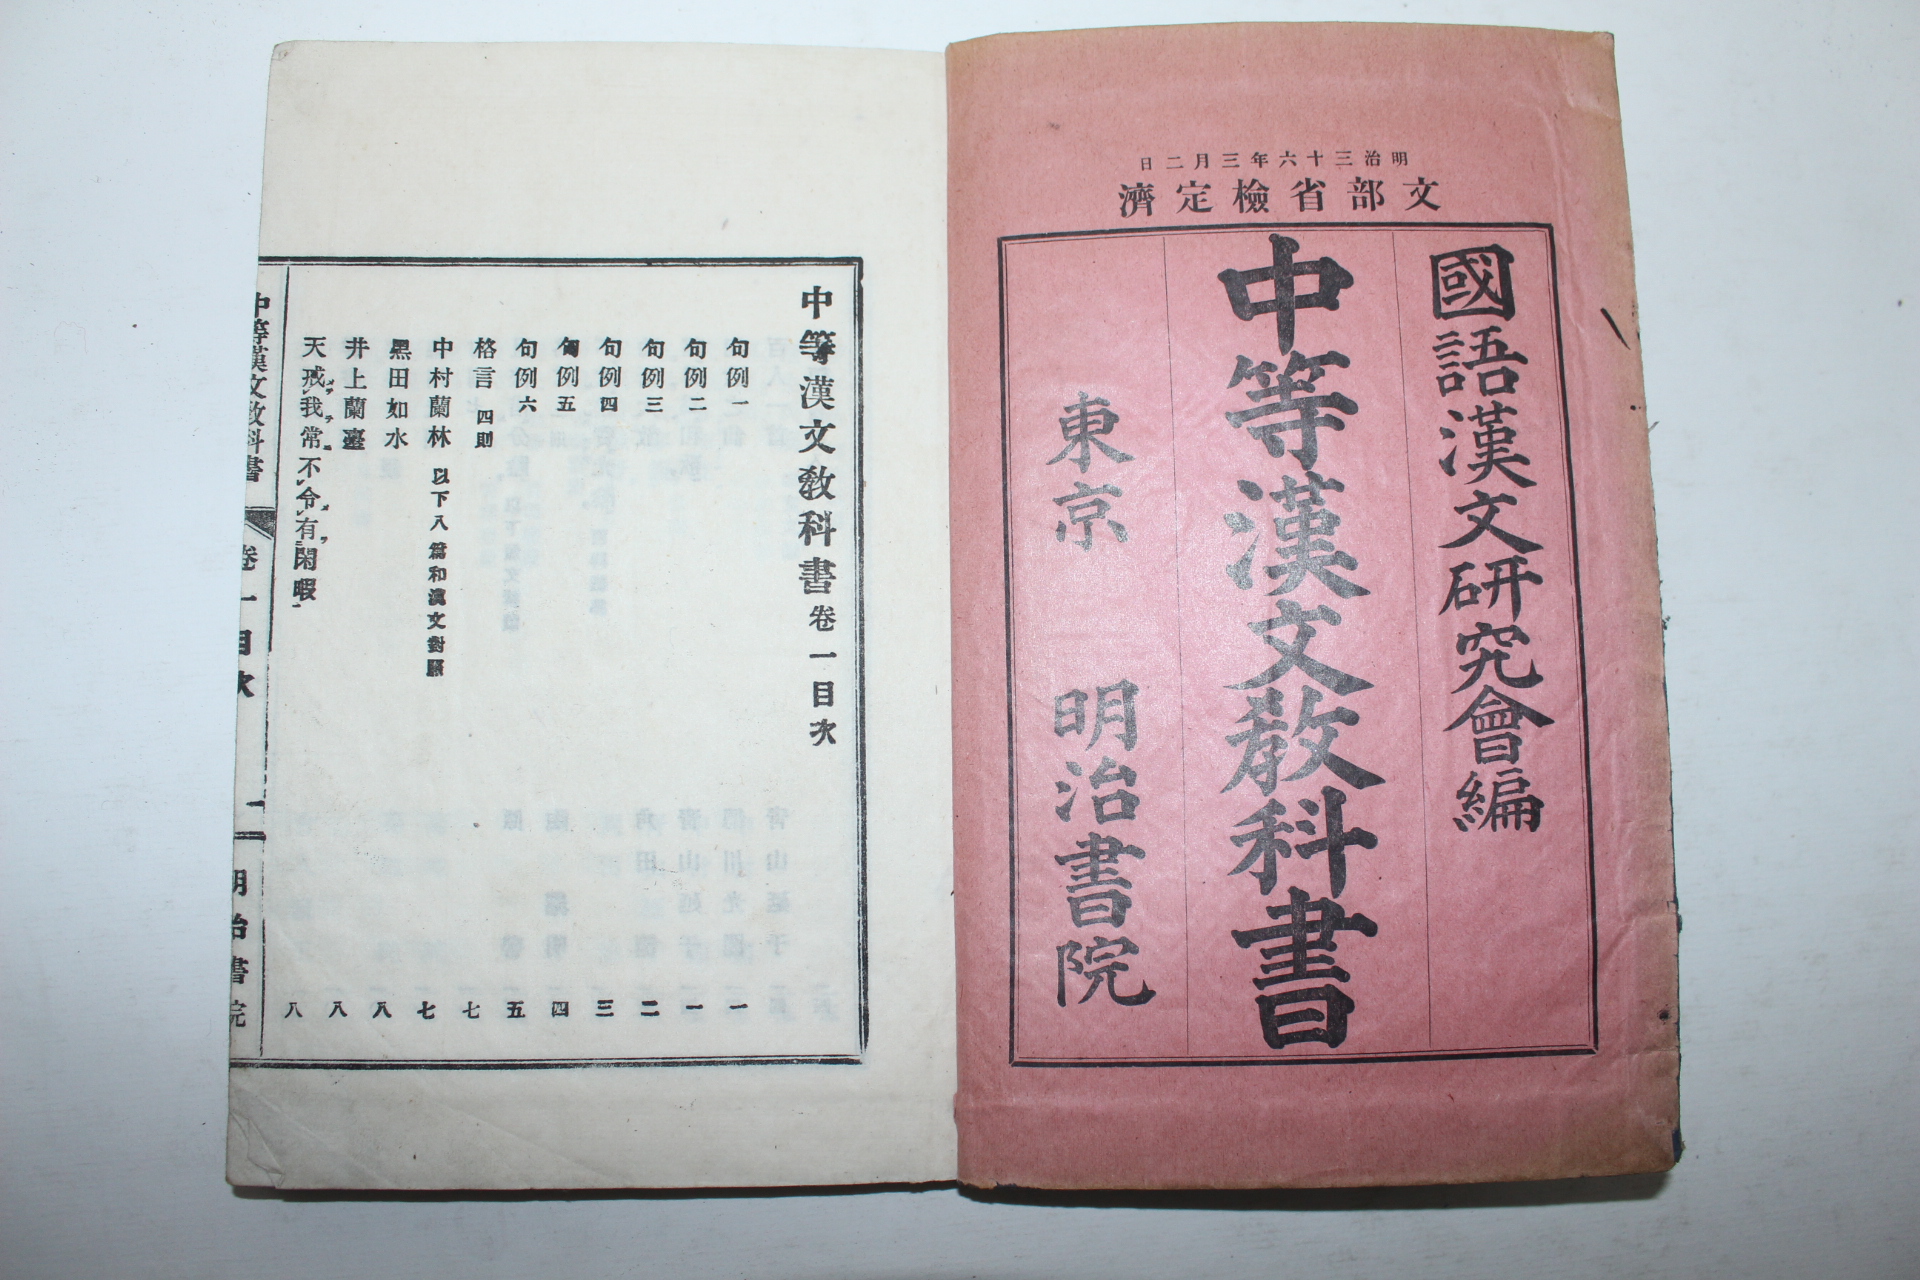 明治三十六年三月二日
文部省檢定濟
國語漢文研究會編
中等漢文敎科書
東京 明治書院
中等漢文敎科書卷一目次
句例一 一
句例二 一
句例三 二
句例四 三
句例五 四
句例六 五
格言 四則 七
中村蘭林 以下八篇和漢文對照 七
黑田如水 八
井上蘭臺 八
天戒我常不令有閑暇 八
中等漢文敎科書 卷一目次 一 明治書院